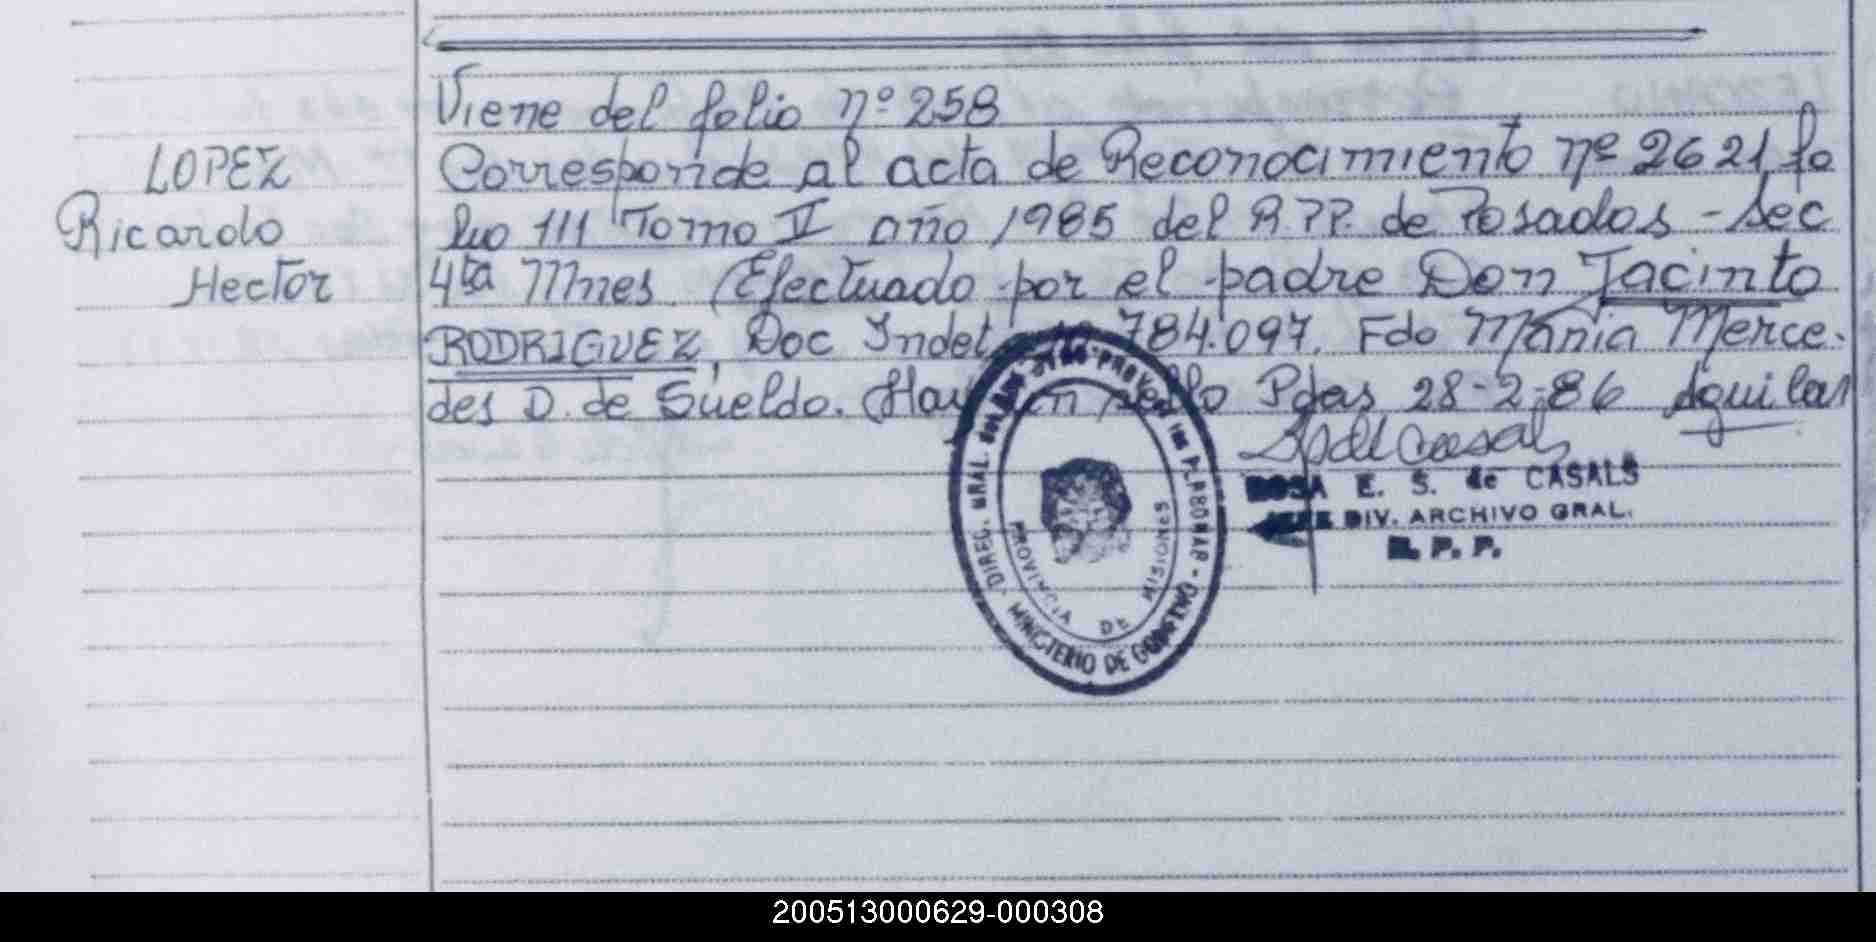 Viene del folio nº 258
LOPEZ
Ricardo
Hector
Corresponde al acta de Reconocimiento nº 2621, fo
lio 111 Tomo V año 1985 del R.PP. de Posadas - Sec
4ta Mnes. (Efectuado por el padre Don Jacinto
RODRIGUEZ, Doc Indet 784.097. Fdo Maria Merce-
des D. de Sueldo. (Hay un sello Pdas 28-2-86 Aguilar
ROSA E. S. de CASALS
JEFE DIV. ARCHIVO GRAL.
R. P. P.
DIREC. GRAL. DE LAS PERSONAS - MINISTERIO DE GOBIERNO
PROVINCIA DE MISIONES
200513000629-000308